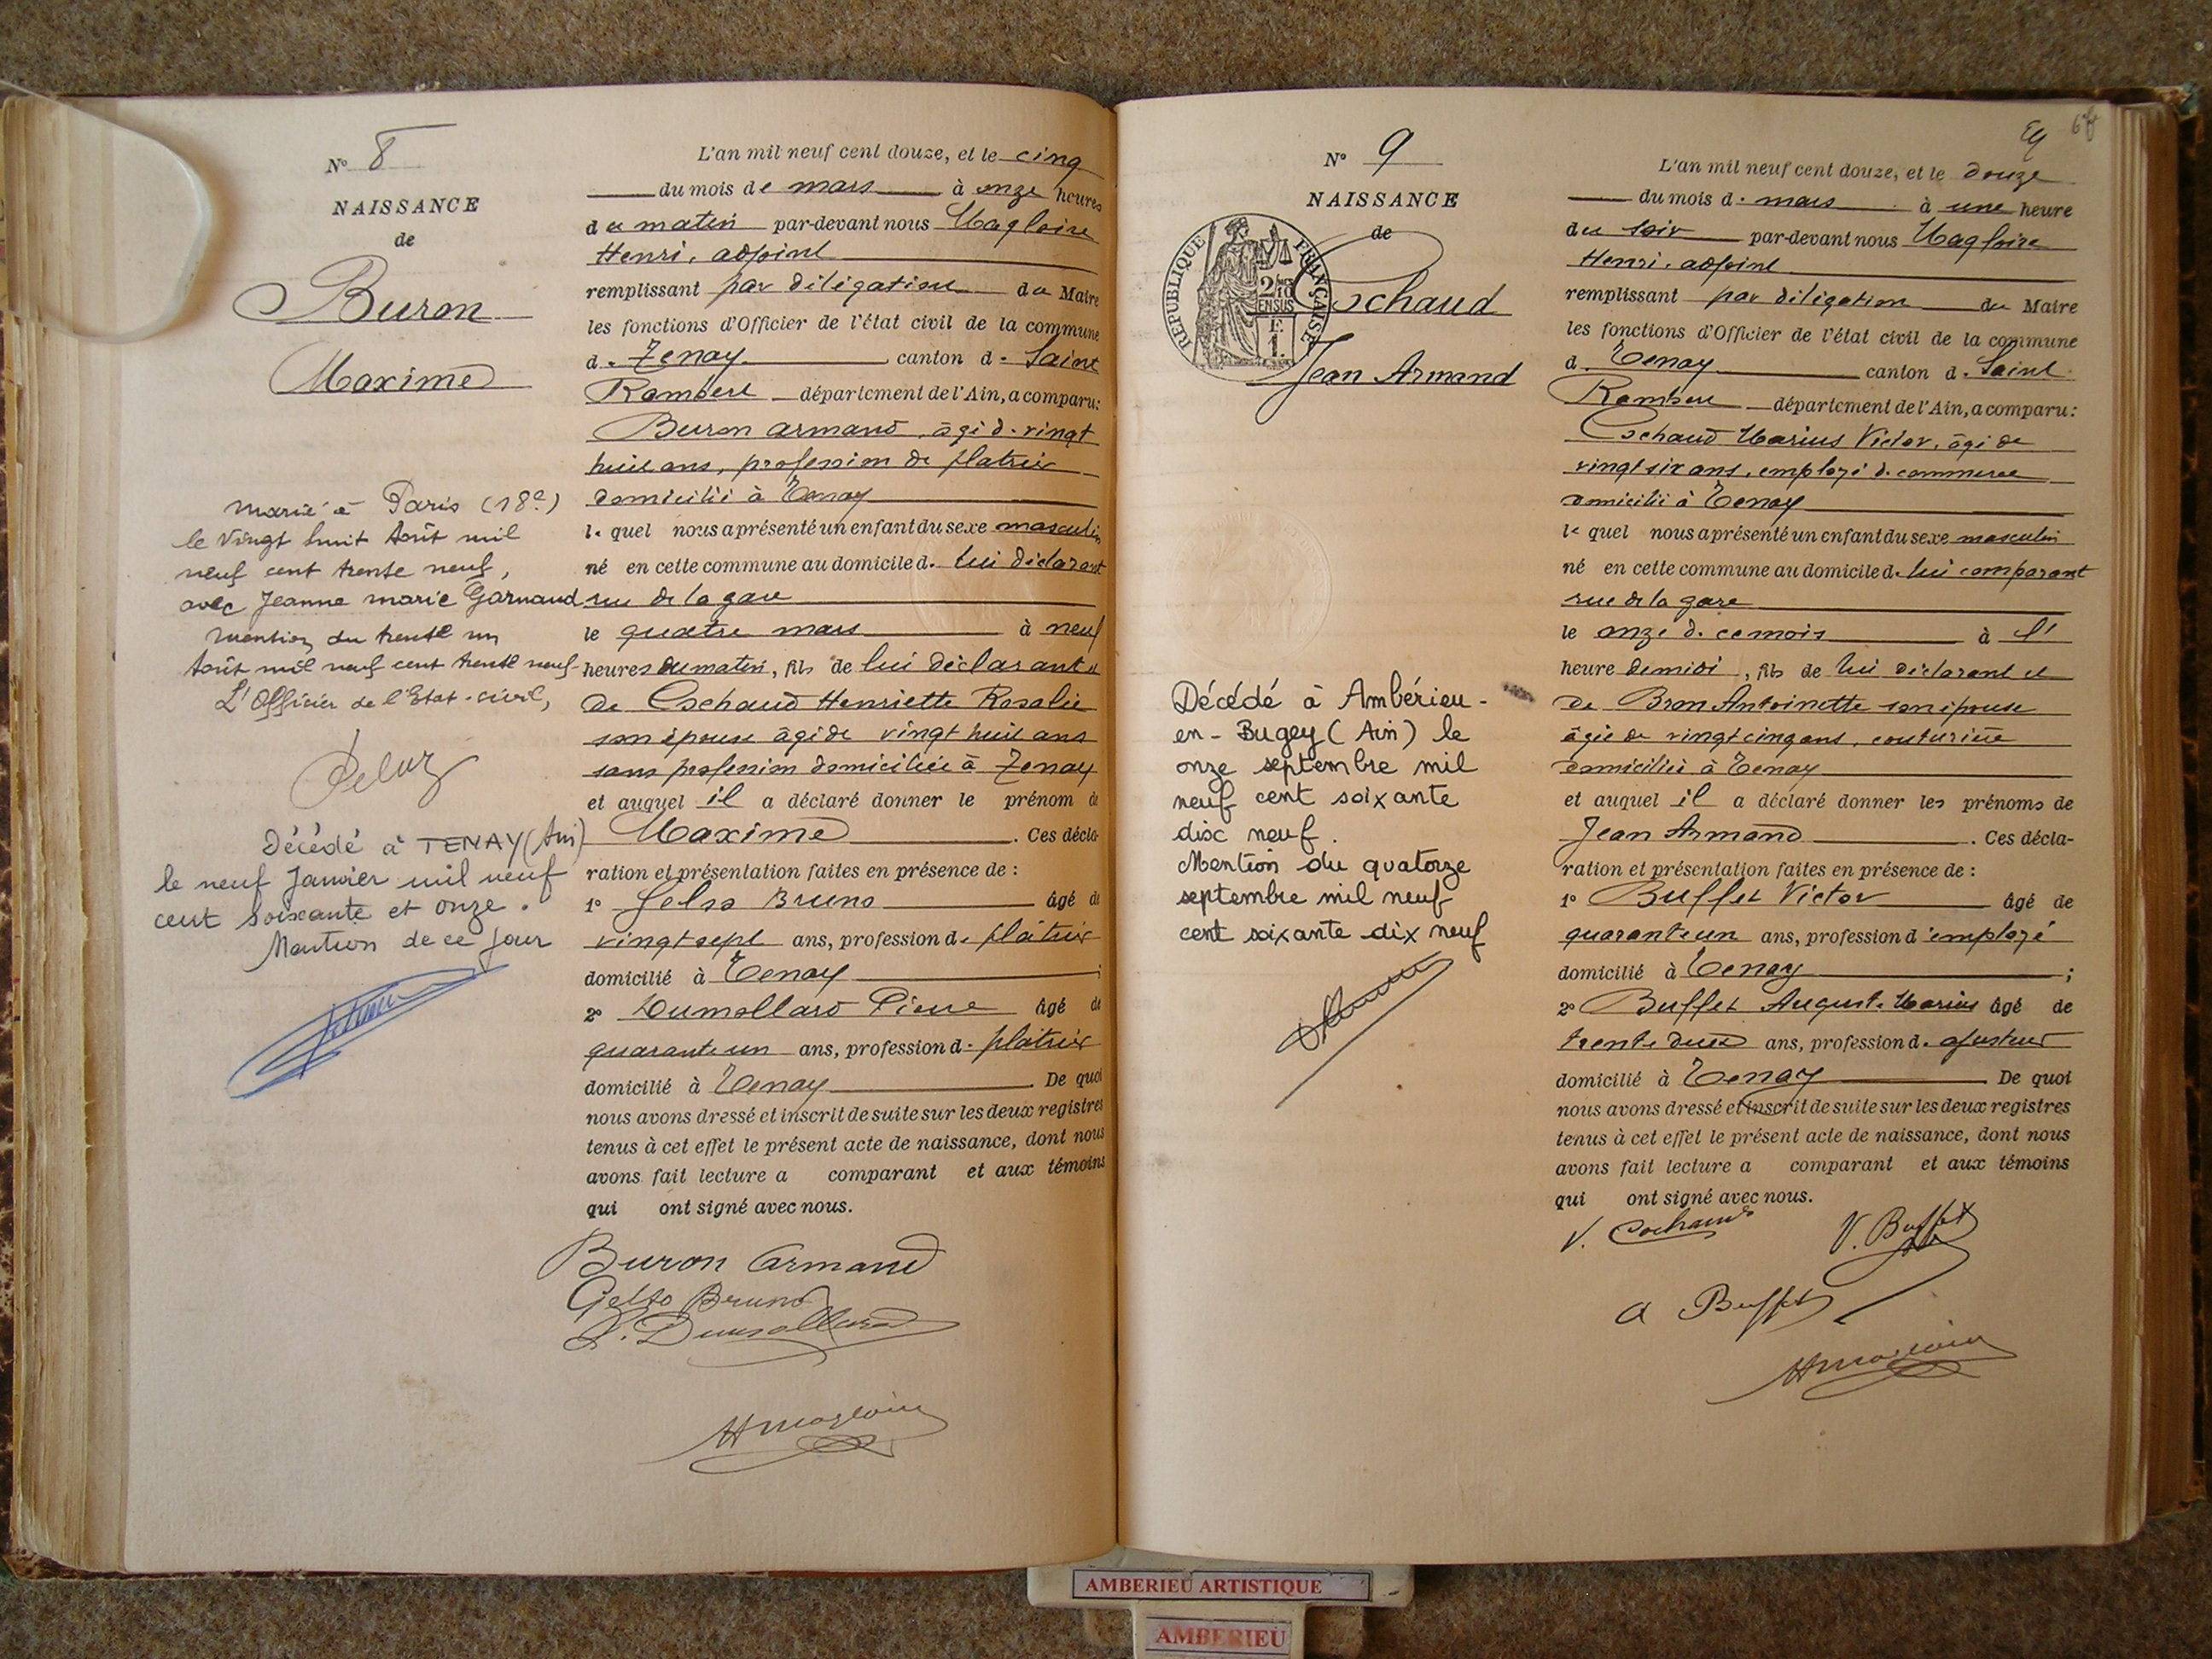 N° 8
NAISSANCE
de
Buron
Maxime
Marié à Paris (18e)
le vingt huit Août mil
neuf cent trente neuf,
avec Jeanne Marie Garnaud
Mention du trente un
Août mil neuf cent trente neuf
L'Officier de l'Etat-civil,
Décédé à TENAY (Ain)
le neuf Janvier mil neuf
cent soixante et onze.
Mention de ce jour
L'an mil neuf cent douze, et le cinq
du mois de mars à onze heures
du matin par-devant nous Magloire
Henri, adjoint
remplissant par délégation du Maire
les fonctions d'Officier de l'état civil de la commune
d. Tenay canton d. Saint
Rambert département de l'Ain, a comparu:
Buron Armand, âgé d. vingt
huit ans, profession de platrier
domicilié à Tenay
le quel nous a présenté un enfant du sexe masculin
né en cette commune au domicile d. lui déclarant
rue de la gare
le quatre mars à neuf
heures du matin, fils de lui déclarant et
de Cochaud Henriette Rosalie
son épouse âgée de vingt huit ans
sans profession domiciliée à Tenay
et auquel il a déclaré donner le prénom de
Maxime. Ces décla-
ration et présentation faites en présence de :
1° Gelso Bruno âgé de
vingt sept ans, profession d. platrier
domicilié à Tenay ;
2° Dumollard Pierre âgé de
quarante un ans, profession d. platrier
domicilié à Tenay. De quoi
nous avons dressé et inscrit de suite sur les deux registres
tenus à cet effet le présent acte de naissance, dont nous
avons fait lecture a comparant et aux témoins
qui ont signé avec nous.
Buron Armand
Gelso Bruno
P. Dumollard
HMagloire
64
N° 9
NAISSANCE
de
REPUBLIQUE FRANÇAISE
2/10
EN SUS
F.
1.
Cochaud
Jean Armand
Décédé à Ambérieu-
en-Bugey (Ain) le
onze septembre mil
neuf cent soixante
disc neuf.
Mention du quatorze
septembre mil neuf
cent soixante dix neuf
L'an mil neuf cent douze, et le douze
du mois d. mars à une heure
du soir par-devant nous Magloire
Henri, adjoint
remplissant par délégation du Maire
les fonctions d'Officier de l'état civil de la commune
d. Tenay canton d. Saint
Rambert département de l'Ain, a comparu:
Cochaud Marius Victor, âgé de
vingt six ans, employé d. commerce
domicilié à Tenay
le quel nous a présenté un enfant du sexe masculin
né en cette commune au domicile d. lui comparant
rue de la gare
le onze d. ce mois à l'
heure de midi, fils de lui déclarant et
de Bron Antoinette son épouse
âgée de vingt cinq ans, couturière
domiciliée à Tenay
et auquel il a déclaré donner les prénoms de
Jean Armand. Ces décla-
ration et présentation faites en présence de :
1° Buffet Victor âgé de
quarante un ans, profession d'employé
domicilié à Tenay ;
2° Buffet Auguste Marius âgé de
trente deux ans, profession d. ajusteur
domicilié à Tenay De quoi
nous avons dressé et inscrit de suite sur les deux registres
tenus à cet effet le présent acte de naissance, dont nous
avons fait lecture a comparant et aux témoins
qui ont signé avec nous.
V. Cochaud V. Buffet
A Buffet
HMagloire
AMBERIEU ARTISTIQUE
AMBERIEU